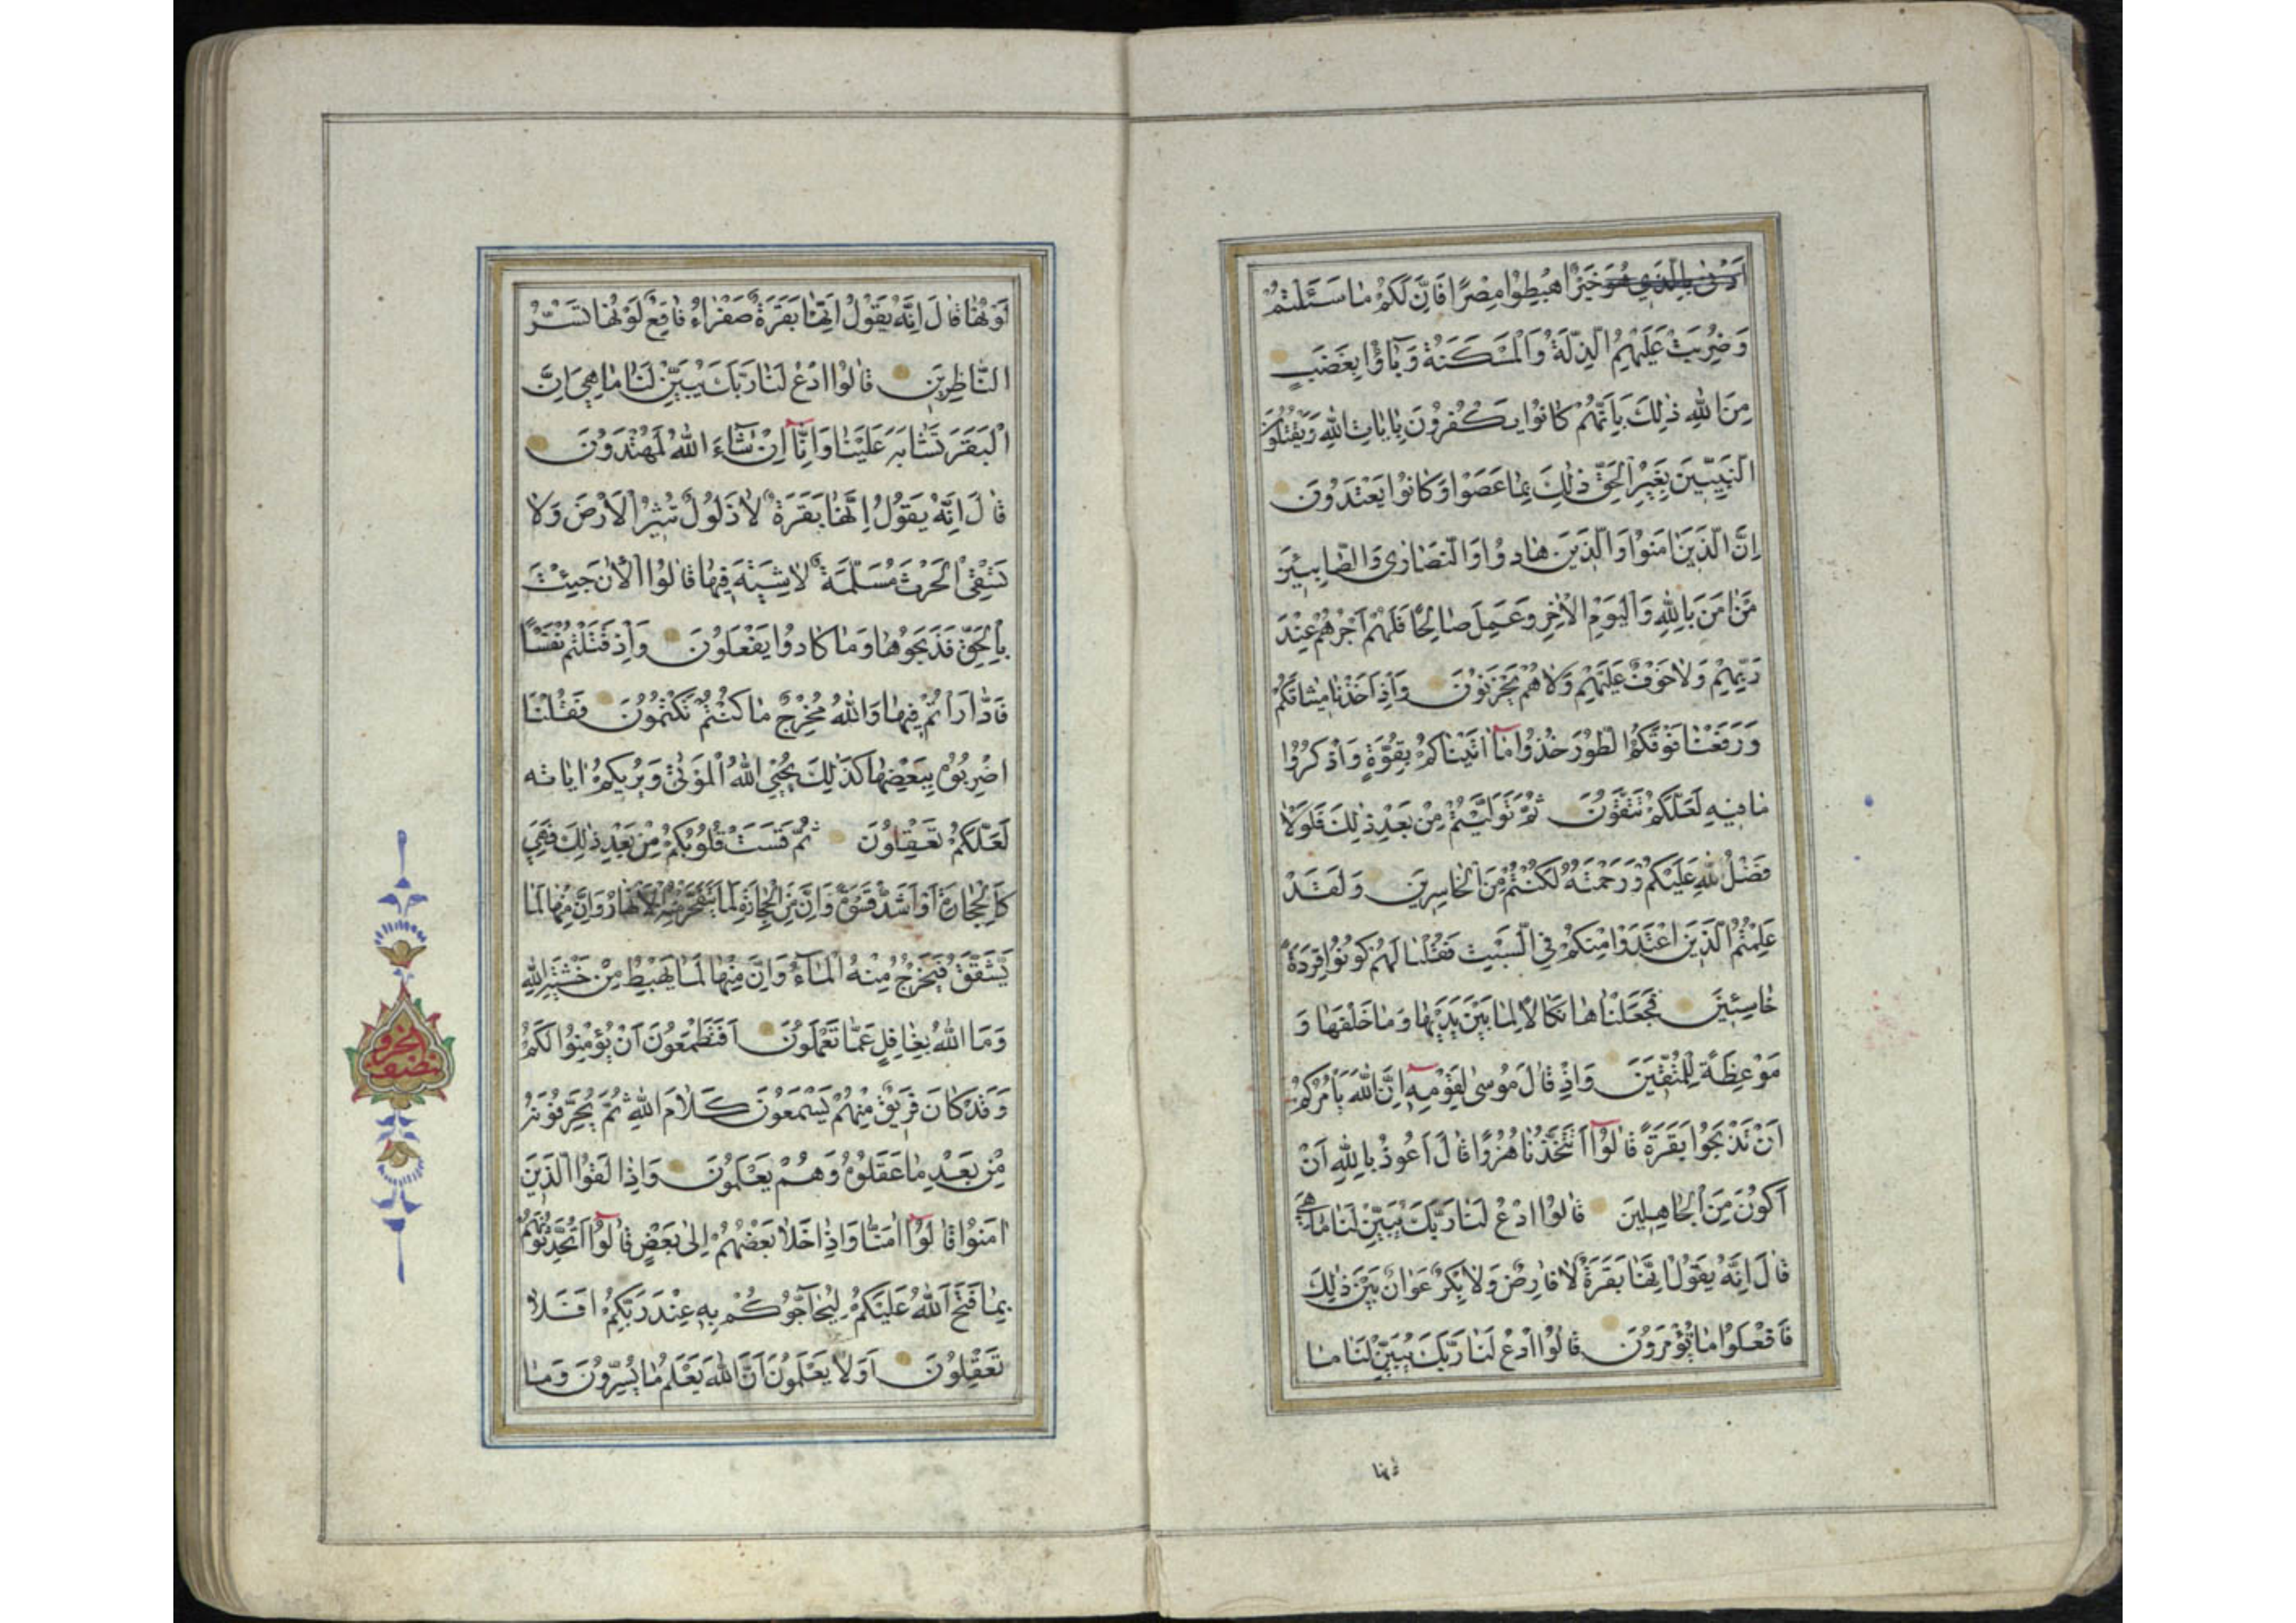 اَدْنٰى بِالَّذِي هُوَ خَيْرٌ اهْبِطُوا مِصْرًا فَاِنَّ لَكُمْ مَا سَئَلْتُمْ
وَضُرِبَتْ عَلَيْهِمُ الذِّلَّةُ وَالْمَسْكَنَةُ وَبَآؤُا بِغَضَبٍ
مِنَ اللهِ ذٰلِكَ بِاَنَّهُمْ كَانُوا يَكْفُرُونَ بِاٰيَاتِ اللهِ وَيَقْتُلُونَ
النَّبِيّينَ بِغَيْرِ الْحَقِّ ذٰلِكَ بِمَا عَصَوْا وَكَانُوا يَعْتَدُونَ
اِنَّ الَّذِينَ اٰمَنُوا وَالَّذِينَ هَادُوا وَالنَّصَارٰى وَالصَّابِئِينَ
مَنْ اٰمَنَ بِاللهِ وَالْيَوْمِ الْاٰخِرِ وَعَمِلَ صَالِحًا فَلَهُمْ اَجْرُهُمْ عِنْدَ
رَبِّهِمْ وَلَا خَوْفٌ عَلَيْهِمْ وَلَا هُمْ يَحْزَنُونَ وَاِذْ اَخَذْنَا مِيثَاقَكُمْ
وَرَفَعْنَا فَوْقَكُمُ الطُّورَ خُذُوا مَآ اٰتَيْنَاكُمْ بِقُوَّةٍ وَاذْكُرُوا
مَا فِيهِ لَعَلَّكُمْ تَتَّقُونَ ثُمَّ تَوَلَّيْتُمْ مِنْ بَعْدِ ذٰلِكَ فَلَوْلَا
فَضْلُ اللهِ عَلَيْكُمْ وَرَحْمَتُهُ لَكُنْتُمْ مِنَ الْخَاسِرِينَ وَلَقَدْ
عَلِمْتُمُ الَّذِينَ اعْتَدَوْا مِنْكُمْ فِي السَّبْتِ فَقُلْنَا لَهُمْ كُونُوا قِرَدَةً
خَاسِئِينَ فَجَعَلْنَاهَا نَكَالًا لِمَا بَيْنَ يَدَيْهَا وَمَا خَلْفَهَا وَ
مَوْعِظَةً لِلْمُتَّقِينَ وَاِذْ قَالَ مُوسٰى لِقَوْمِهِٓ اِنَّ اللهَ يَاْمُرُكُمْ
اَنْ تَذْبَحُوا بَقَرَةً قَالُوٓا اَتَتَّخِذُنَا هُزُوًا قَالَ اَعُوذُ بِاللهِ اَنْ
اَكُونَ مِنَ الْجَاهِلِينَ قَالُوا ادْعُ لَنَا رَبَّكَ يُبَيِّنْ لَنَا مَا هِيَ
قَالَ اِنَّهُ يَقُولُ اِنَّهَا بَقَرَةٌ لَا فَارِضٌ وَلَا بِكْرٌ عَوَانٌ بَيْنَ ذٰلِكَ
فَافْعَلُوا مَا تُؤْمَرُونَ قَالُوا ادْعُ لَنَا رَبَّكَ يُبَيِّنْ لَنَا مَا
لَوْنُهَا قَالَ اِنَّهُ يَقُولُ اِنَّهَا بَقَرَةٌ صَفْرَاءُ فَاقِعٌ لَوْنُهَا تَسُرُّ
النَّاظِرِينَ قَالُوا ادْعُ لَنَا رَبَّكَ يُبَيِّنْ لَنَا مَا هِيَ اِنَّ
الْبَقَرَ تَشَابَهَ عَلَيْنَا وَاِنَّآ اِنْ شَآءَ اللهُ لَمُهْتَدُونَ
قَالَ اِنَّهُ يَقُولُ اِنَّهَا بَقَرَةٌ لَا ذَلُولٌ تُثِيرُ الْاَرْضَ وَلَا
تَسْقِي الْحَرْثَ مُسَلَّمَةٌ لَا شِيَةَ فِيهَا قَالُوا الْاٰنَ جِئْتَ
بِالْحَقِّ فَذَبَحُوهَا وَمَا كَادُوا يَفْعَلُونَ وَاِذْ قَتَلْتُمْ نَفْسًا
فَادّٰرَاْتُمْ فِيهَا وَاللهُ مُخْرِجٌ مَا كُنْتُمْ تَكْتُمُونَ فَقُلْنَا
اضْرِبُوهُ بِبَعْضِهَا كَذٰلِكَ يُحْيِي اللهُ الْمَوْتٰى وَيُرِيكُمْ اٰيَاتِه
لَعَلَّكُمْ تَعْقِلُونَ ثُمَّ قَسَتْ قُلُوبُكُمْ مِنْ بَعْدِ ذٰلِكَ فَهِيَ
كَالْحِجَارَةِ اَوْ اَشَدُّ قَسْوَةً وَاِنَّ مِنَ الْحِجَارَةِ لَمَا يَتَفَجَّرُ مِنْهُ الْاَنْهَارُ وَاِنَّ مِنْهَا لَمَا
يَشَّقَّقُ فَيَخْرُجُ مِنْهُ الْمَآءُ وَاِنَّ مِنْهَا لَمَا يَهْبِطُ مِنْ خَشْيَةِ اللهِ
وَمَا اللهُ بِغَافِلٍ عَمَّا تَعْمَلُونَ اَفَتَطْمَعُونَ اَنْ يُؤْمِنُوا لَكُمْ
وَقَدْ كَانَ فَرِيقٌ مِنْهُمْ يَسْمَعُونَ كَلَامَ اللهِ ثُمَّ يُحَرِّفُونَهُ
مِنْ بَعْدِ مَا عَقَلُوهُ وَهُمْ يَعْلَمُونَ وَاِذَا لَقُوا الَّذِينَ
اٰمَنُوا قَالُوٓا اٰمَنَّا وَاِذَا خَلَا بَعْضُهُمْ اِلٰى بَعْضٍ قَالُوٓا اَتُحَدِّثُونَهُمْ
بِمَا فَتَحَ اللهُ عَلَيْكُمْ لِيُحَآجُّوكُمْ بِهِ عِنْدَ رَبِّكُمْ اَفَلَا
تَعْقِلُونَ اَوَلَا يَعْلَمُونَ اَنَّ اللهَ يَعْلَمُ مَا يُسِرُّونَ وَمَا
نصف الحزب